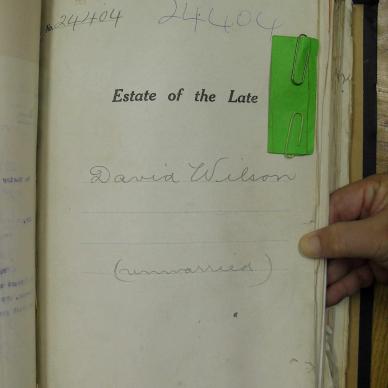 No 24404 24404
Estate of the Late
David Wilson
(unmarried)